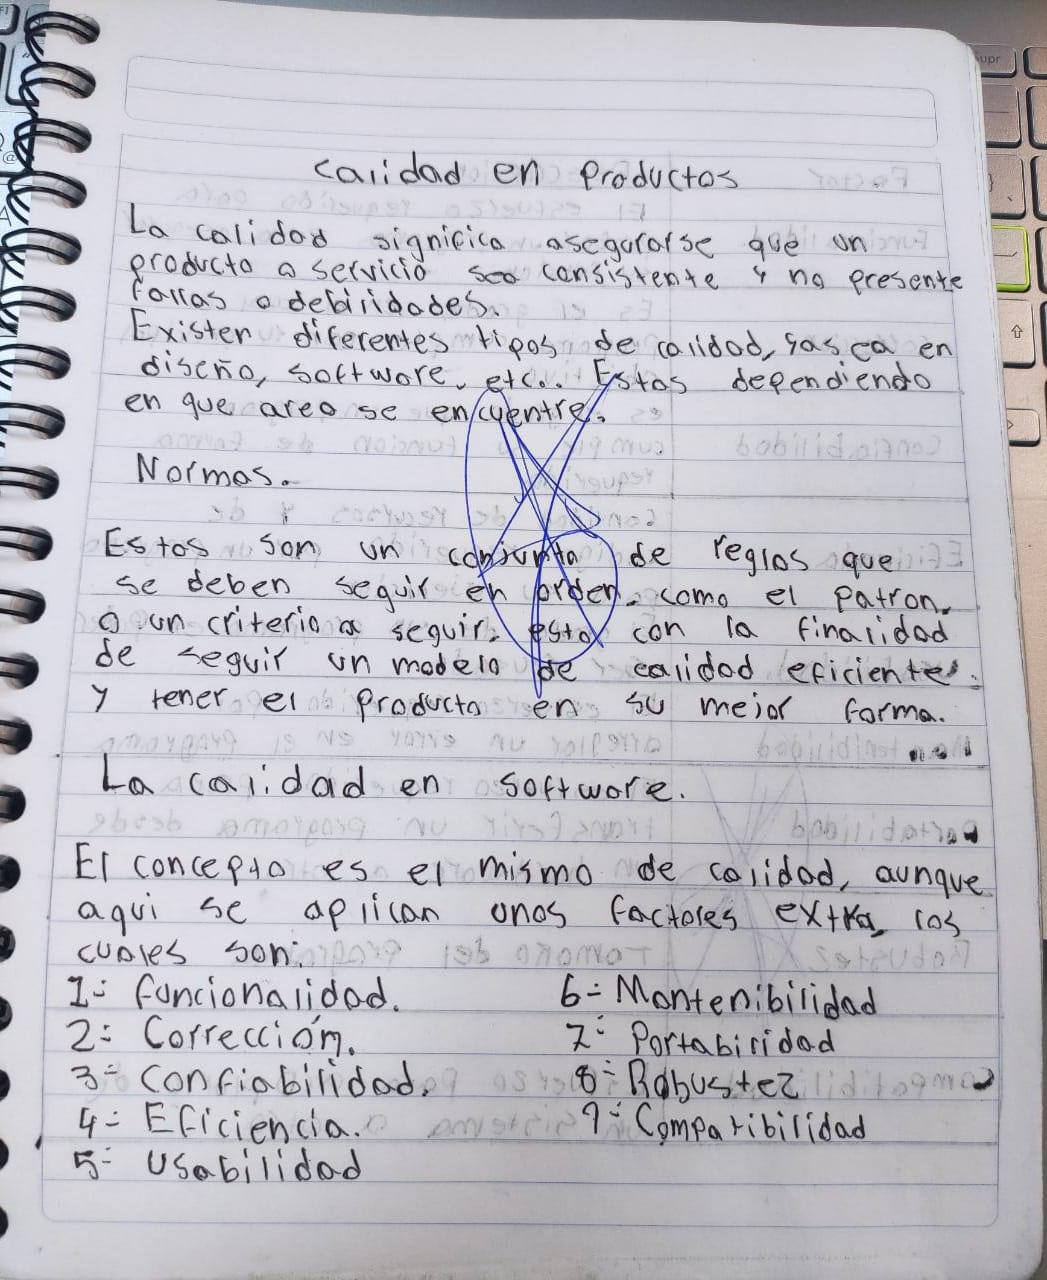 Calidad en Productos
La calidad significa asegurarse que un
producto o servicio sea consistente y no presente
fallas o debilidades.
Existen diferentes tipos de calidad, sas ea en
diseño, software, etc.. Estas dependiendo
en que area se encuentre.
Normas.
Estos son un conjunto de reglas que
se deben seguir en orden, como el Patron,
o un criterio a seguir, esto con la finalidad
de seguir un modelo de calidad eficiente
y tener el producto en su mejor forma.
La calidad en software.
El concepto es el mismo de calidad, aunque
aqui se aplican unos factores extra, los
cuales son:
1- funcionalidad.
2- Corrección.
3- Confiabilidad.
4- Eficiencia.
5- Usabilidad
6- Mantenibilidad
7- Portabilidad
8- Robustez
9- Compatibilidad